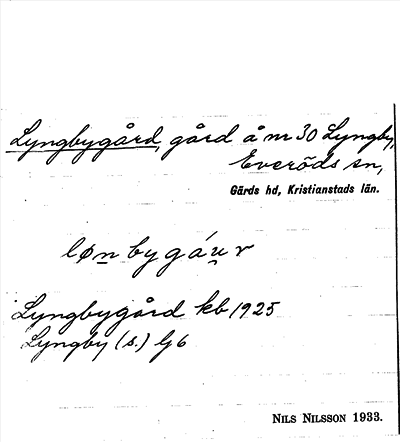 Lyngbygård, gård å nr 30 Lyngby,
Everöds sn,
Gärds hd, Kristianstads län.
løn by gáu r
Lyngbygård kb 1925
Lyngby (s.) G6
NILS NILSSON 1933.